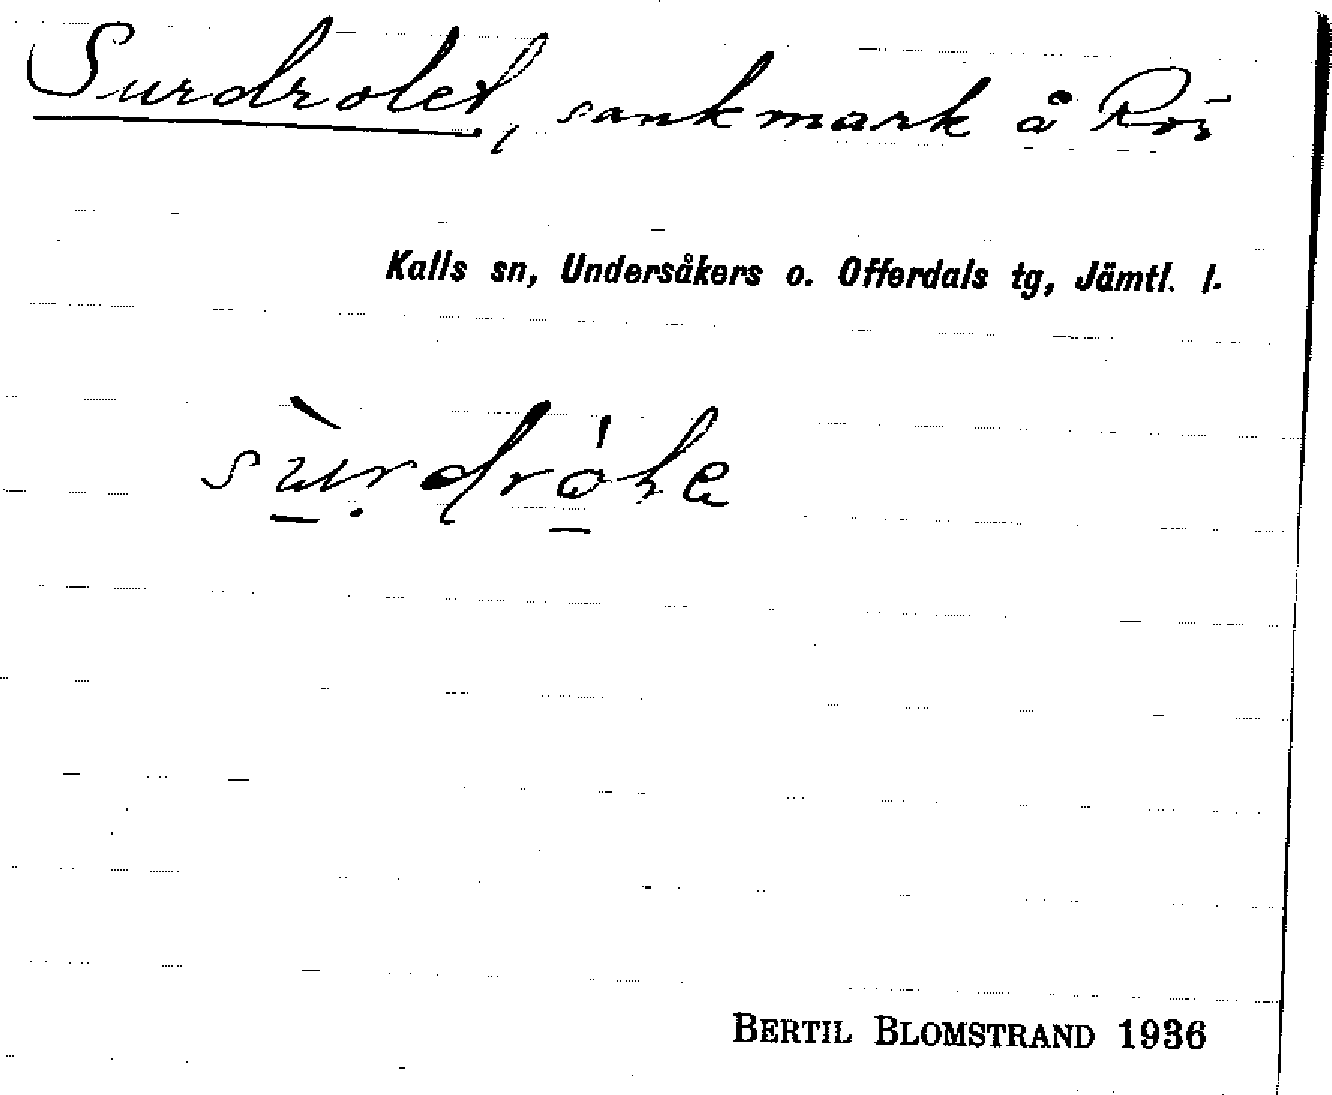 Surdrolet, sankmark å Röi
Kalls sn, Undersåkers o. Offerdals tg, Jämtl. l.
BERTIL BLOMSTRAND 1936